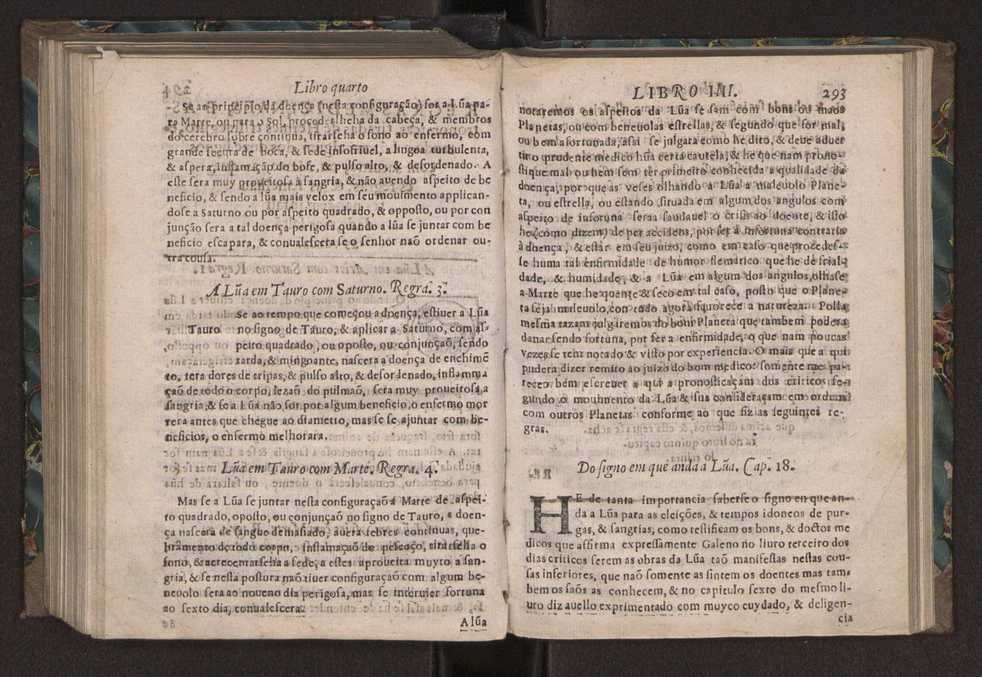 Libro quarto
Se ao principio da doença (nesta configuração) for a Lũa pa-
ra Marte, ou para o Sol, procede-lheha da cabeça, & membros
do cerebro febre continua, tirarselha o sono ao enfermo, com
grande secura de boca, & sede insofriuel, a lingoa turbulenta,
& aspera, inflamação do bofe, & pulso alto, & desordenado. A
este sera muy proueitosa a sangria, & não auendo aspeito de be
neficio, & sendo a lũa mais velox em seu mouimento applican-
dose a Saturno ou por aspeito quadrado, & opposto, ou por con
junção sera a tal doença perigosa quando a lũa se juntar com be
neficio escapara, & conualescera se o senhor naõ ordenar ou-
tra cousa.
A Lũa em Tauro com Saturno. Regra. 3.
Se ao tempo que começou a doença, estiuer a Lũa
Tauro no signo de Tauro, & aplicar a Saturno, com as-
peito quadrado, ou oposto, ou conjunçaõ, sendo
tarda, & mingoante, nascera a doença de enchimẽ
to, tera dores de tripas, & pulso alto, & desordenado, inflamma
çaõ de todo o corpo, lezaõ do pulmaõ, sera muy proueitosa a
sangria, & se a Lũa não for por algum beneficio, o enfermo mor
rera antes que chegue ao diametro, mas se se ajuntar com be-
neficios, o enfermo melhorara.
Lũa em Tauro com Marte. Regra. 4.
Mas se a Lũa se juntar nesta configuraçaõ a Marte de aspei-
to quadrado, oposto, ou conjunçaõ no signo de Tauro, a doen-
ça nascera de sangue demasiado, auera febres continuas, que-
bramento de todo corpo, inflamaçaõ de pescoço, tirarselha o
sono, & acrecentarselha a sede, a estes aproueita muyto a san-
gria, & se nesta postura naõ tiuer configuraçaõ com algum be-
neuolo sera ao noueno dia perigosa, mas se interuier fortuna
ao sexto dia, conualescera:
A lũa
LIBRO IIII. 293
notaremos os aspeitos da Lũa se sam com bons ou maos
Planetas, ou com beneuolas estrellas, & segundo que for mal,
ou bem afortunada, assi se julgara como he dito, & deue aduer
tir o prudente medico hũa certa cautela, & he que nam prono-
stique mal ou bem sem ter primeiro conhecida a qualidade da
doença, porque as veses olhando a Lũa a maleuolo Plane-
ta, ou estrella, ou estando situada em algum dos angulos com
aspeito de infortuna seraa saudauel o crisis ao doente, & isto
he (como dizem) de per accidens, por ser a infortuna contraria
à doença, & estar em seu juizo, como em caso que procedes-
se huma tal enfirmidade de humor flemarico que he de frial-
dade, & humidade, & a Lũa em algum dos angulos, olhasse
a Marte que he quente & seco em tal caso, posto que o Plane-
ta seja maleuolo, con todo ajuda, fauorece a natureza. Polla
mesma razam julgaremos do bom Planeta que tambem podera
danar sendo fortuna, por ser a enfirmidade, o que nam poucas
vezes se tem notado & visto por experiencia. O mais que a qui
pudera dizer remito ao juizo do bom medico: somente me pa-
receo bem escreuer a qui a pronosticaçam dos criticos se-
gundo o mouimento da Lũa & sua consideraçam em ordem
com outros Planetas conforme ao que fiz as seguintes re-
gras.
Do signo em que anda a Lũa. Cap. 18.
HE de tanta importancia saberse o signo en que an-
da a Lũa para as eleições, & tempos idoneos de pur-
gas, & sangrias, como testificam os bons, & doctos me
dicos que affirma expressamente Galeno no liuro terceiro dos
dias criticos serem as obras da Lũa taõ manifestas nestas cou-
sas inferiores, que naõ somente as sintem os doentes mas tam-
bem os saõs as conhecem, & no capitulo sexto do mesmo li-
uro diz auello exprimentado com muyco cuydado, & deligen-
cia